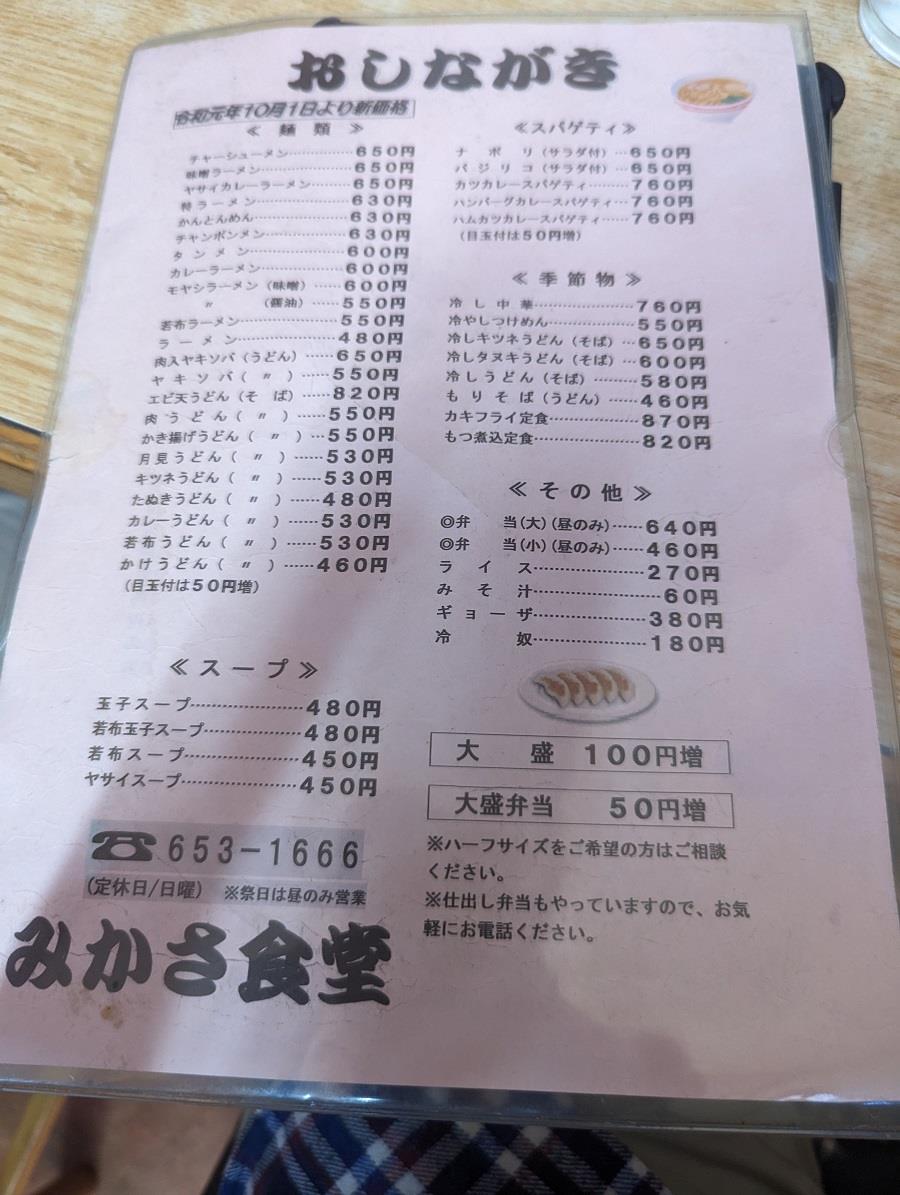 おしながき
令和元年10月1日より新価格
≪ 麺 類 ≫
チャーシューメン……………650円
味噌ラーメン…………………650円
ヤサイカレーラーメン………650円
特ラーメン……………………630円
かんとんめん…………………630円
チャンポンメン………………630円
タンメン………………………600円
カレーラーメン………………600円
モヤシラーメン（味噌）……600円
〃（醤油）……550円
若布ラーメン…………………550円
ラーメン………………………480円
肉入ヤキソバ（うどん）……650円
ヤキソバ（ 〃 ）……550円
エビ天うどん（そ ば）……820円
肉うどん（ 〃 ）……550円
かき揚げうどん（ 〃 ）…550円
月見うどん（ 〃 ）……530円
キツネうどん（ 〃 ）……530円
たぬきうどん（ 〃 ）……480円
カレーうどん（ 〃 ）……530円
若布うどん（ 〃 ）……530円
かけうどん（ 〃 ）……460円
（目玉付は50円増）
≪スープ≫
玉子スープ…………………480円
若布玉子スープ……………480円
若布スープ…………………450円
ヤサイスープ………………450円
☎653-1666
（定休日/日曜） ※祭日は昼のみ営業
みかさ食堂
≪スパゲティ≫
ナポリ（サラダ付）…650円
バジリコ（サラダ付）…650円
カツカレースパゲティ………760円
ハンバーグカレースパゲティ…760円
ハムカツカレースパゲティ……760円
（目玉付は50円増）
≪季節物≫
冷し中華…………………760円
冷やしつけめん……………550円
冷しキツネうどん（そば）…650円
冷しタヌキうどん（そば）…600円
冷しうどん（そば）………580円
もりそば（うどん）……460円
カキフライ定食………………870円
もつ煮込定食…………………820円
≪その他≫
◎弁 当(大)(昼のみ)……640円
◎弁 当(小)(昼のみ)……460円
ライス…………………270円
みそ汁……………………60円
ギョーザ…………………380円
冷 奴…………………180円
大 盛 100円増
大盛弁当 50円増
※ハーフサイズをご希望の方はご相談
ください。
※仕出し弁当もやっていますので、お気
軽にお電話ください。